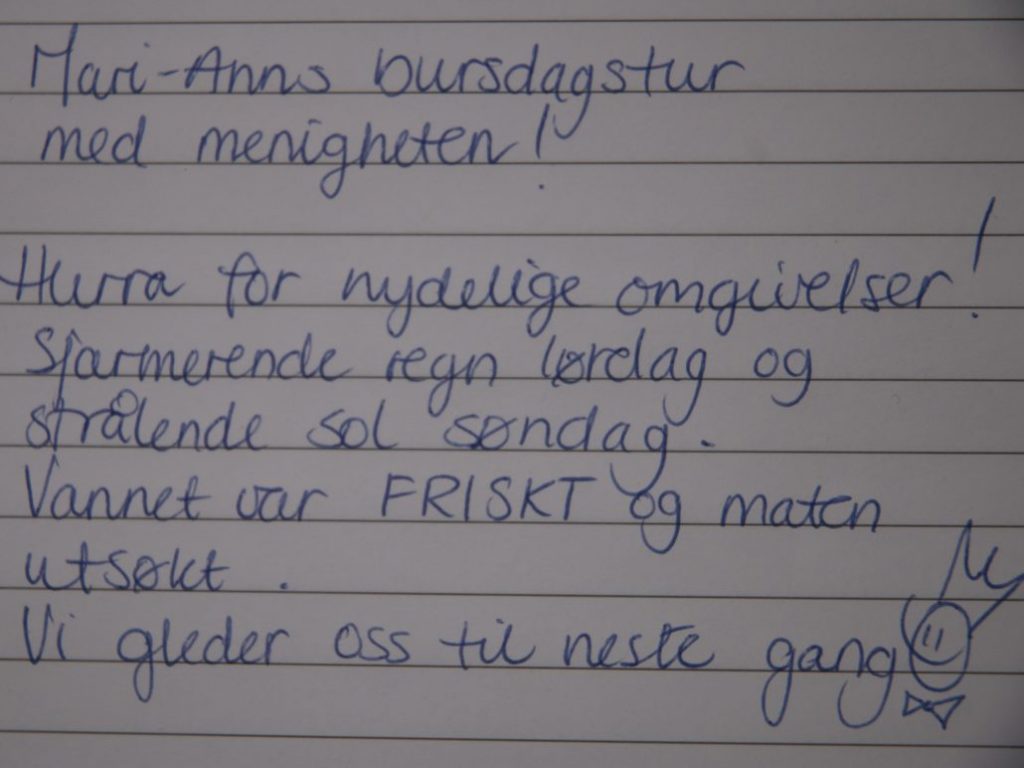 Mari-Anns bursdagstur
med menigheten!
Hurra for nydelige omgivelser!
Sjarmerende regn lørdag og
strålende sol søndag.
Vannet var FRISKT og maten
utsøkt.
Vi gleder oss til neste gang